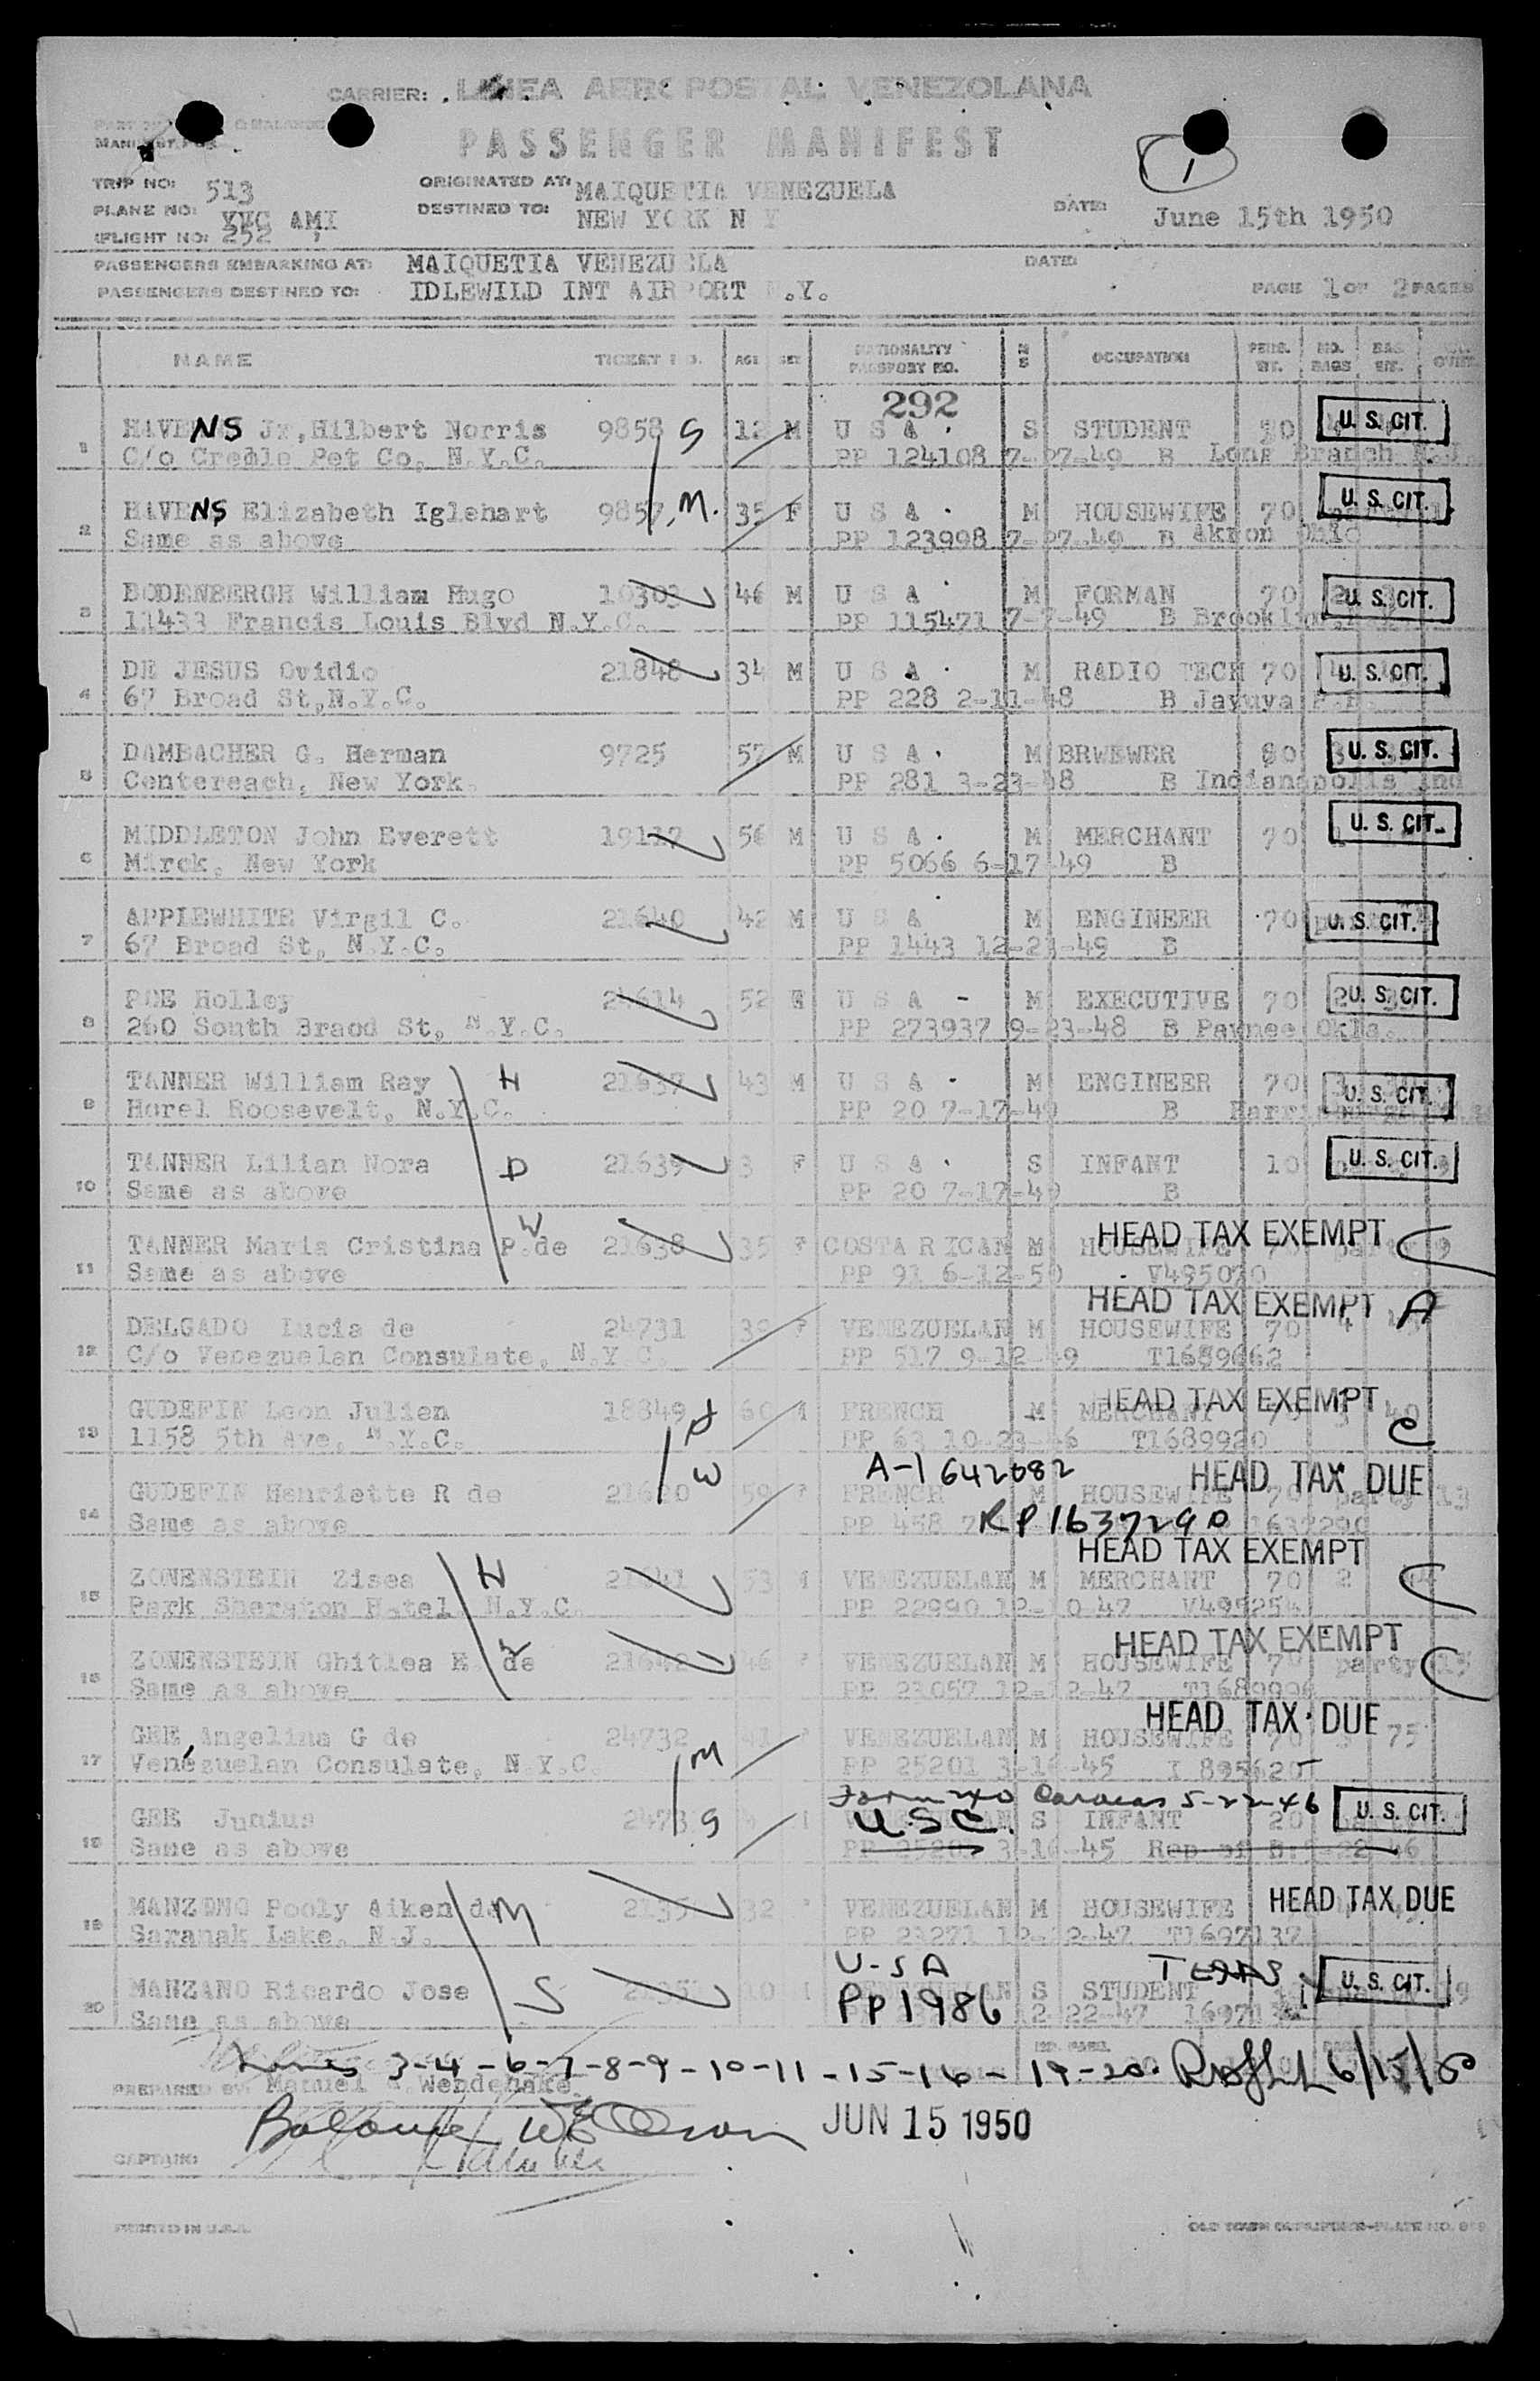 CARRIER: LINEA AEROPOSTAL VENEZOLANA
PASSENGER MANIFEST
1
TRIP NO: 513 ORIGINATED AT: MAIQUETIA VENEZUELA
PLANE NO: YVC AMI DESTINED TO: NEW YORK N Y DATE: June 15th 1950
FLIGHT NO: 252
PASSENGERS EMBARKING AT: MAIQUETIA VENEZUELA DATE:
PASSENGERS DESTINED TO: IDLEWILD INT AIRPORT N.Y. PAGE 1 OF 2 PAGES
NAME TICKET NO. AGE SEX NATIONALITY PASSPORT NO. M S OCCUPATION PERS. WT. NO. BAGS BAG. WT.
292
1 HAVENS Jr, Hilbert Norris 9858 S 12 M U S A S STUDENT 70 U. S. CIT.
C/o Creole Pet Co, N.Y.C. PP 124108 7-27-49 B Long Branch N.J.
2 HAVENS Elizabeth Iglehart 9857 M. 35 F U S A M HOUSEWIFE 70 U. S. CIT.
Same as above PP 123998 7-27-49 B Akron Ohio
3 BODENBERGH William Hugo 10303 46 M U S A M FORMAN 70 2 U. S. CIT.
11433 Francis Louis Blvd N.Y.C. PP 115471 7-7-49 B Brooklin
4 DE JESUS Ovidio 21848 34 M U S A M RADIO TECH 70 U. S. CIT.
67 Broad St, N.Y.C. PP 228 2-11-48 B Jayuya P.R.
5 DAMBACHER G. Herman 9725 57 M U S A M BRWEWER 80 U. S. CIT.
Centereach, New York. PP 281 3-23-48 B Indianapolis Ind
6 MIDDLETON John Everett 19117 56 M U S A M MERCHANT 70 U. S. CIT.
Mirck, New York PP 5066 6-17-49 B
7 APPLEWHITE Virgil C. 21640 42 M U S A M ENGINEER 70 U. S. CIT.
67 Broad St, N.Y.C. PP 1443 12-23-49 B
8 POE Holley 24614 52 U S A - M EXECUTIVE 70 2 U. S. CIT.
260 South Braod St, N.Y.C. PP 273937 9-23-48 B Pawnee Okla.
9 TANNER William Ray H 21637 43 M U S A M ENGINEER 70 U. S. CIT.
Horel Roosevelt, N.Y.C. PP 20 7-17-49 B
10 TANNER Lilian Nora D 21639 3 F U S A S INFANT 10 U. S. CIT.
Same as above PP 20 7-17-49 B
HEAD TAX EXEMPT
11 TANNER Maria Cristina P. de W 21638 35 F COSTA RICAN M HOUSEWIFE 70 party 9
Same as above PP 91 6-12-50 V495070
HEAD TAX EXEMPT A
12 DELGADO Lucia de 24731 39 F VENEZUELAN M HOUSEWIFE 70 4
C/o Venezuelan Consulate, N.Y.C. PP 517 9-12-49 T1689662
HEAD TAX EXEMPT
13 GUDEFIN Leon Julien 18849 60 M FRENCH M MERCHANT 70 3 40
1158 5th Ave, N.Y.C. PP 63 10-23-46 T1689920
A-1642082 HEAD TAX DUE
14 GUDEFIN Henriette R de W 59 F FRENCH M HOUSEWIFE 70 party 13
Same as above PP 458 RP 1637290
HEAD TAX EXEMPT
15 ZONENSTEIN Zisea H 21641 53 M VENEZUELAN M MERCHANT 70 2
Park Sheraton Hotel, N.Y.C. PP 22990 12-10-47 V495254
HEAD TAX EXEMPT
16 ZONENSTEIN Ghitlea E. de W 21642 46 F VENEZUELAN M HOUSEWIFE 70 party 15
Same as above PP 23057 12-12-47
HEAD TAX DUE
17 GEE, Angelina G de M 24732 41 F VENEZUELAN M HOUSEWIFE 70 3 75
Venezuelan Consulate, N.Y.C. PP 25201 3-16-45 I 895620
Form 240 Caracas 5-22-46
18 GEE Junius S U.S.C. S INFANT 20 U. S. CIT.
Same as above 3-16-45
19 MANZONO Pooly Aiken de M 32 F VENEZUELAN M HOUSEWIFE HEAD TAX DUE
Saranak Lake, N.J. PP 23271 12-22-47 T1697137
U-SA TEXAS
20 MANZANO Ricardo Jose S 10 S STUDENT U. S. CIT.
Same as above PP 1986 12-22-47
Lines 3-4-6-7-8-9-10-11-15-16-19-20. 6/15/50
PREPARED BY: Manuel Wendehake
Balance JUN 15 1950
CAPTAIN:
PRINTED IN U.S.A.